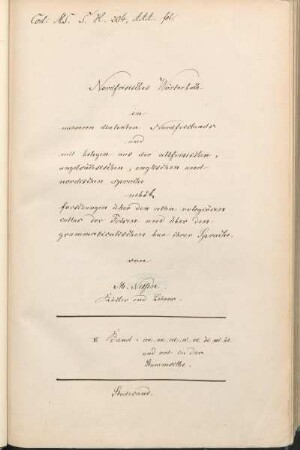 Cod. MS. S. H. 206,
Nordfriesisches Wörterbuch
in
mehreren dialecten Nordfrieslands
und
mit belegen aus der altfriesischen,
angelsächsischen, englischen und
nordischen sprache
nebst
forschungen über den alten religiösen
cultus der Friesen und über den
grammaticalischen bau ihrer Sprache.
von
M. Nissen.
Küster und Lehrer.
Band:
und
Stedesand.